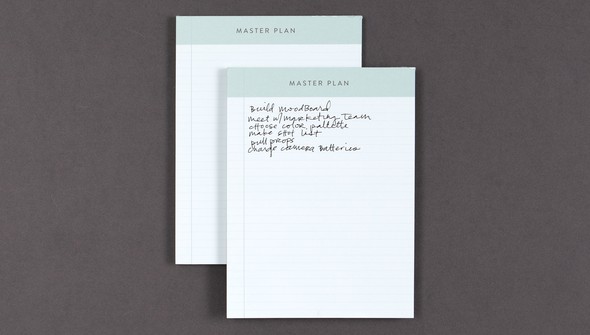 MASTER PLAN
MASTER PLAN
Build moodboard
meet w/marketing Team
choose color pallette
make shot list
pull props
charge camera Batteries